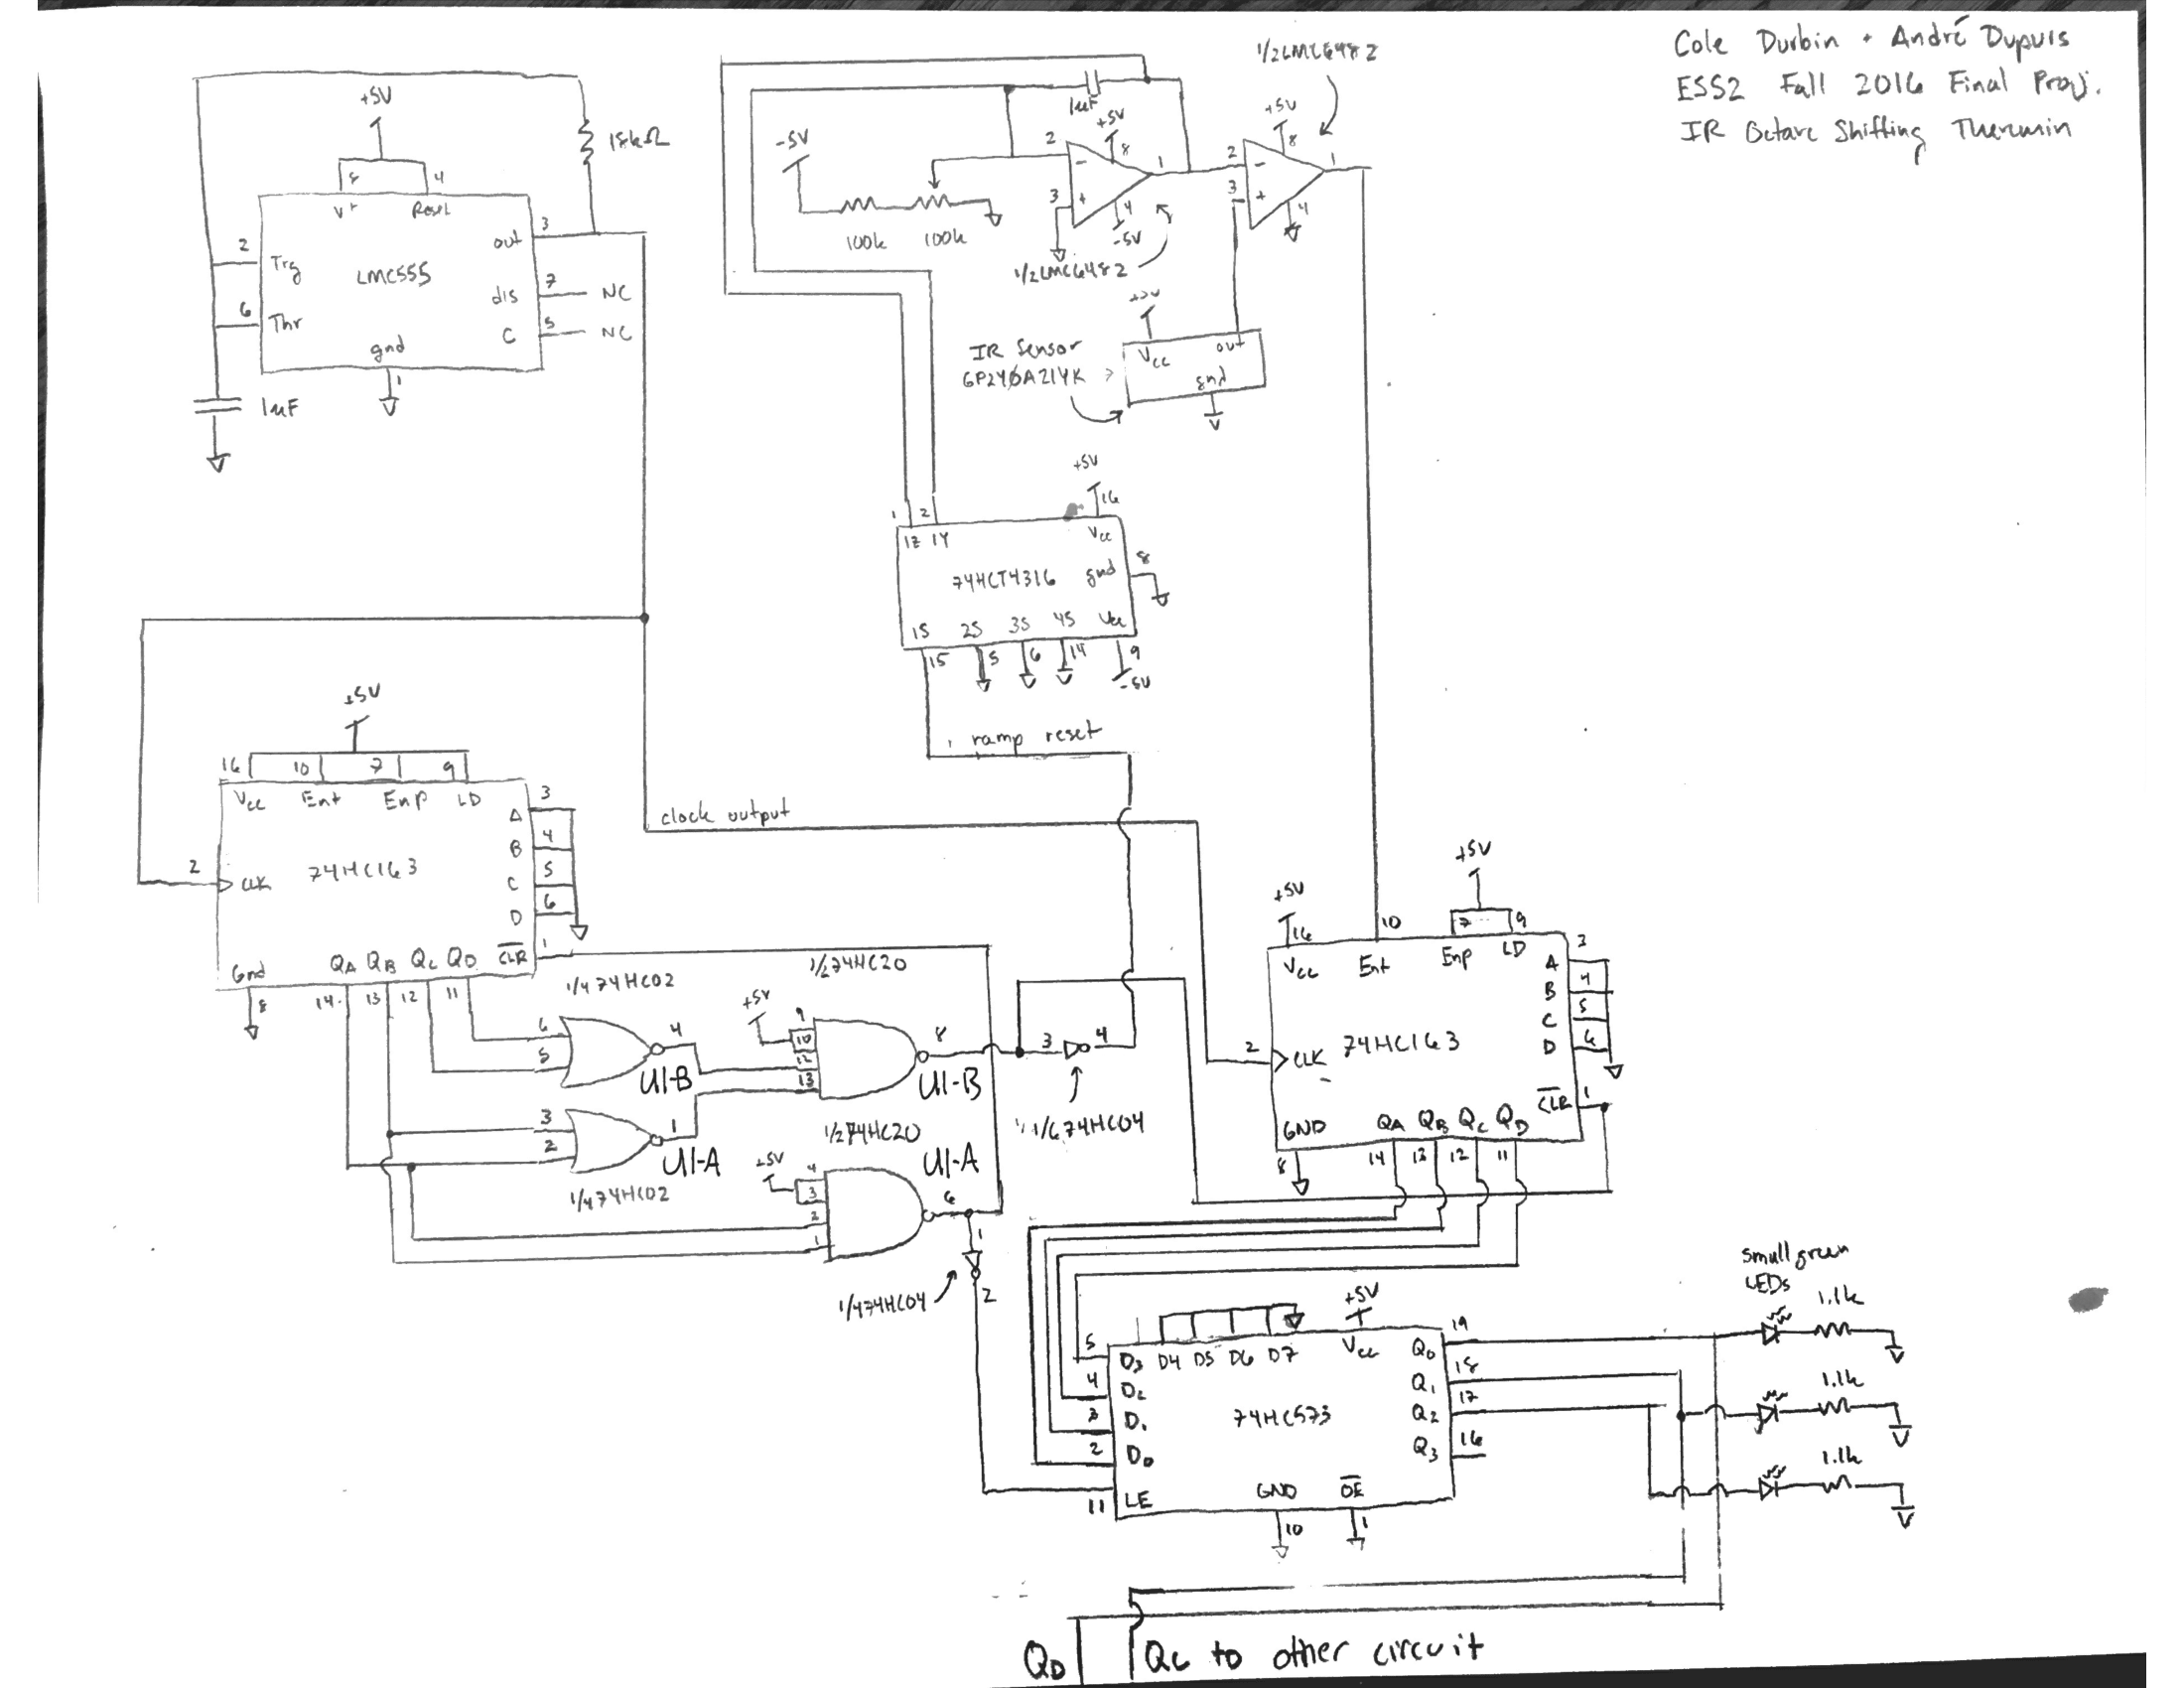 Cole Durbin + André Dupuis
ESS2 Fall 2016 Final Proj.
IR Octave Shifting Theremin
+5V
8
4
V+
Reset
2
Trg
LMC555
6
Thr
gnd
1
out
3
dis
7
NC
C
5
NC
1uF
-5V
100k
100k
1uF
+5V
2
8
1
3
4
-5V
1/2LMC6482
1/2LMC6482
+5V
2
8
1
3
4
Vcc
out
gnd
IR Sensor
1
2
+5V
16
1Z 1Y
Vcc
74HCT4316
gnd
8
1S 2S 3S 4S
15
5
6
14
9
-5V
ramp reset
clock output
+5V
16
10
7
9
Vcc
Ent
Enp
LD
2
CLK
74HC163
A
3
B
4
C
5
D
6
Gnd
QA QB QC QD
CLR
1
8
14
13
12
11
1/4 74HC02
6
5
4
U1-B
3
2
1
U1-A
1/4 74HC02
1/274HC20
+5V
9
10
12
13
8
U1-B
1/274HC20
+5V
4
3
2
1
6
U1-A
3
4
1/674HC04
1
2
1/474HC04
+5V
16
10
+5V
7
9
Vcc
Ent
Enp
LD
2
CLK
74HC163
A
3
B
4
C
5
D
6
CLR
1
GND
QA QB QC QD
8
14
13
12
11
+5V
Vcc
5
D3 D4 D5 D6 D7
4
D2
3
D1
2
D0
11
LE
74HC573
Q0
19
Q1
18
Q2
17
Q3
16
GND
OE
10
1
small green
LEDs
1.1k
1.1k
1.1k
QD
QC to other circuit